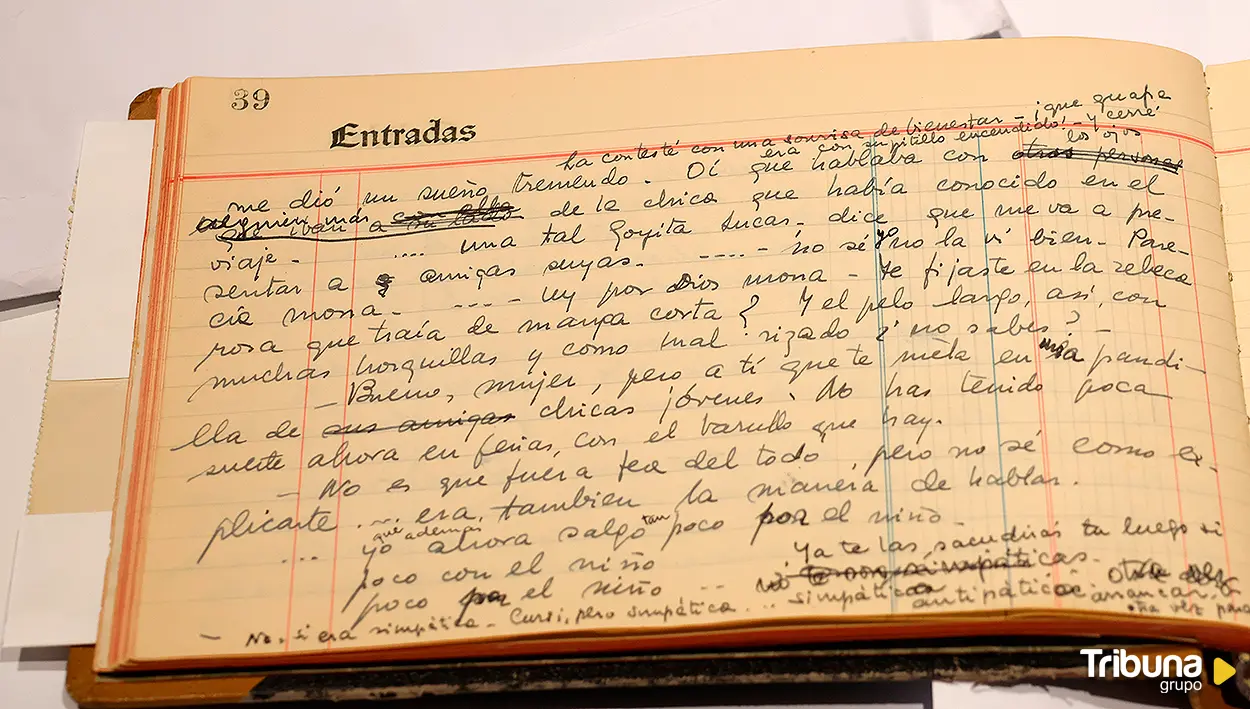 39
Entradas
La contesté con una sonrisa de bienestar - ¡que guapa
era con su pitillo encendido! - y cerré
los ojos
me dió un sueño tremendo. Oí que hablaba con otras personas
alguien más de la chica que había conocido en el
que iban a su lado
viaje - .... una tal Goyita Lucas - dice que me va a pre-
sentar a amigas suyas. ---- no sé yo no la vi bien - Pare-
cía mona. ---- uy por Dios mona - te fijaste en la rebeca
rosa que traía de manga corta? Y el pelo largo, así, con
muchas horquillas y como mal rizado ¿no sabes? -
- Bueno, mujer, pero a tí que te meta en mía pandi-
lla de sus amigas chicas jóvenes. No has tenido poca
suerte ahora en ferias, con el barullo que hay.
- No es que fuera fea del todo, pero no sé como ex-
plicarte .... era, tambien la manera de hablar.
que además
... yo ahora salgo tan poco por el niño -
poco con el niño
Ya te las sacudirás tu luego si
poco por el niño -- simpáticas
antipáticas
otra vez para
- No, si era simpática - Cursi, pero simpática ...
Tribuna
grupo